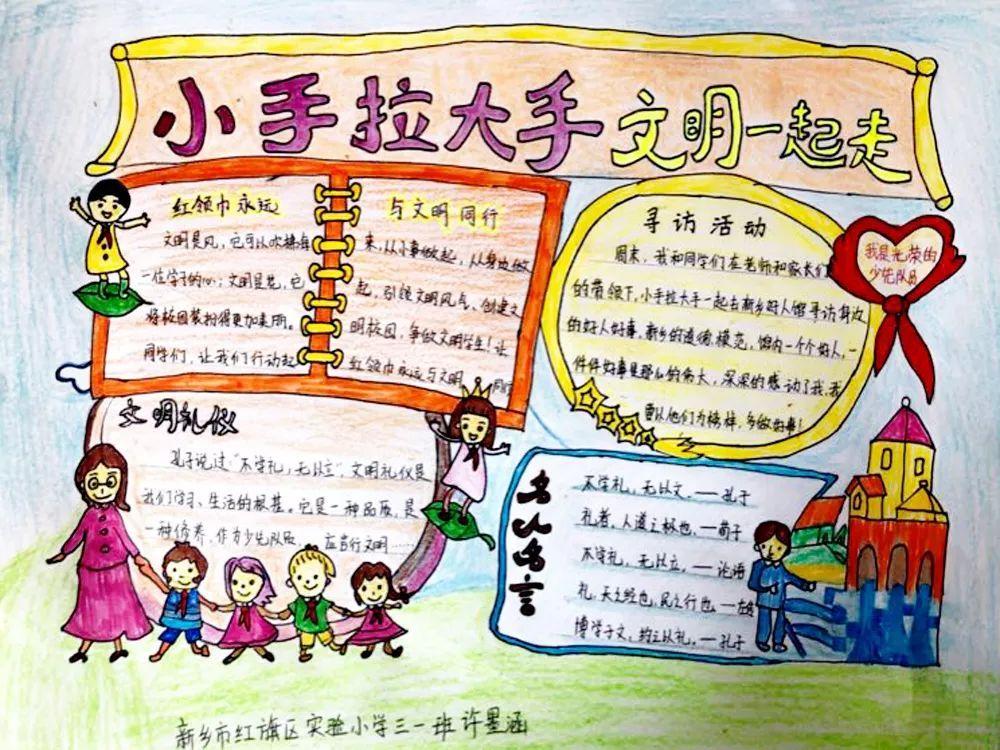 小手拉大手 文明一起走
红领巾永远
文明是风，它可以吹拂每
一位学子的心；文明是花，它
将校园装扮得更加美丽。
同学们，让我们行动起
与文明同行
来，从小事做起，从身边做
起，引领文明风气、创建文
明校园，争做文明学生！让
红领巾永远与文明 同行
寻访活动
周末，我和同学们在老师和家长们
的带领下，小手拉大手一起去新乡好人馆寻访身边
的好人好事，新乡的道德模范，馆内一个个好人，一
件件好事是那么的伟大，深深的感动了我，我
要以他们为榜样，多做好事！
我是光荣的
少先队员
文明礼仪
孔子说过“不学礼，无以立”，文明礼仪是
我们学习、生活的根基。它是一种品质，是
一种修养，作为少先队员， 应当行文明……
名人名言
不学礼，无以文。——孔子
礼者，人道之极也。——荀子
不学礼，无以立。——论语
礼，天之经也，民之行也。——左传
博学于文，约之以礼。——孔子
新乡市红旗区实验小学三一班 许墨涵